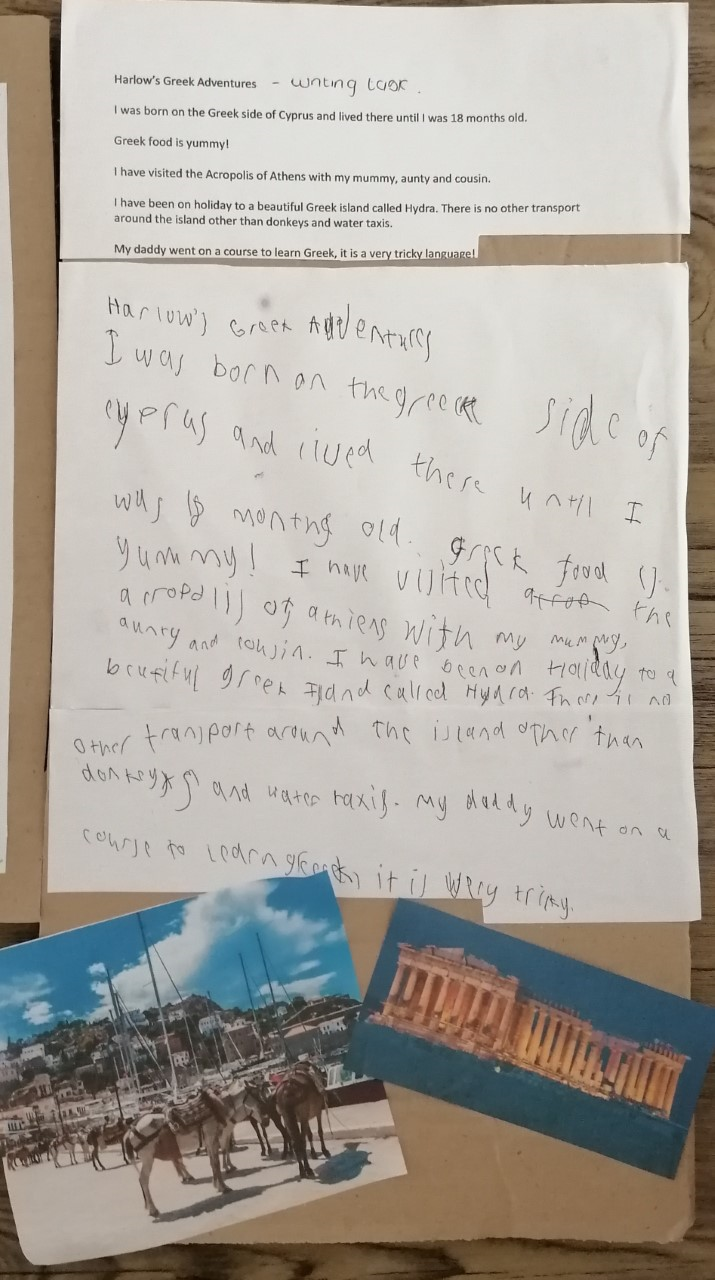 Harlow's Greek Adventures - writing task.
I was born on the Greek side of Cyprus and lived there until I was 18 months old.
Greek food is yummy!
I have visited the Acropolis of Athens with my mummy, aunty and cousin.
I have been on holiday to a beautiful Greek island called Hydra. There is no other transport
around the island other than donkeys and water taxis.
My daddy went on a course to learn Greek, it is a very tricky language!
Harlow's Greek Adventures
I was born on the greek side of
cyprus and lived there until I
was 18 months old. greek food is
yummy! I have visited acrop the
acropolis of athiens with my mummy,
aunty and cousin. I have been on Holiday to a
beutiful greek Island called Hydra. There is no
other transport around the island other than
donkeys and water taxis. my daddy went on a
course to learn greek, it is very tricky.